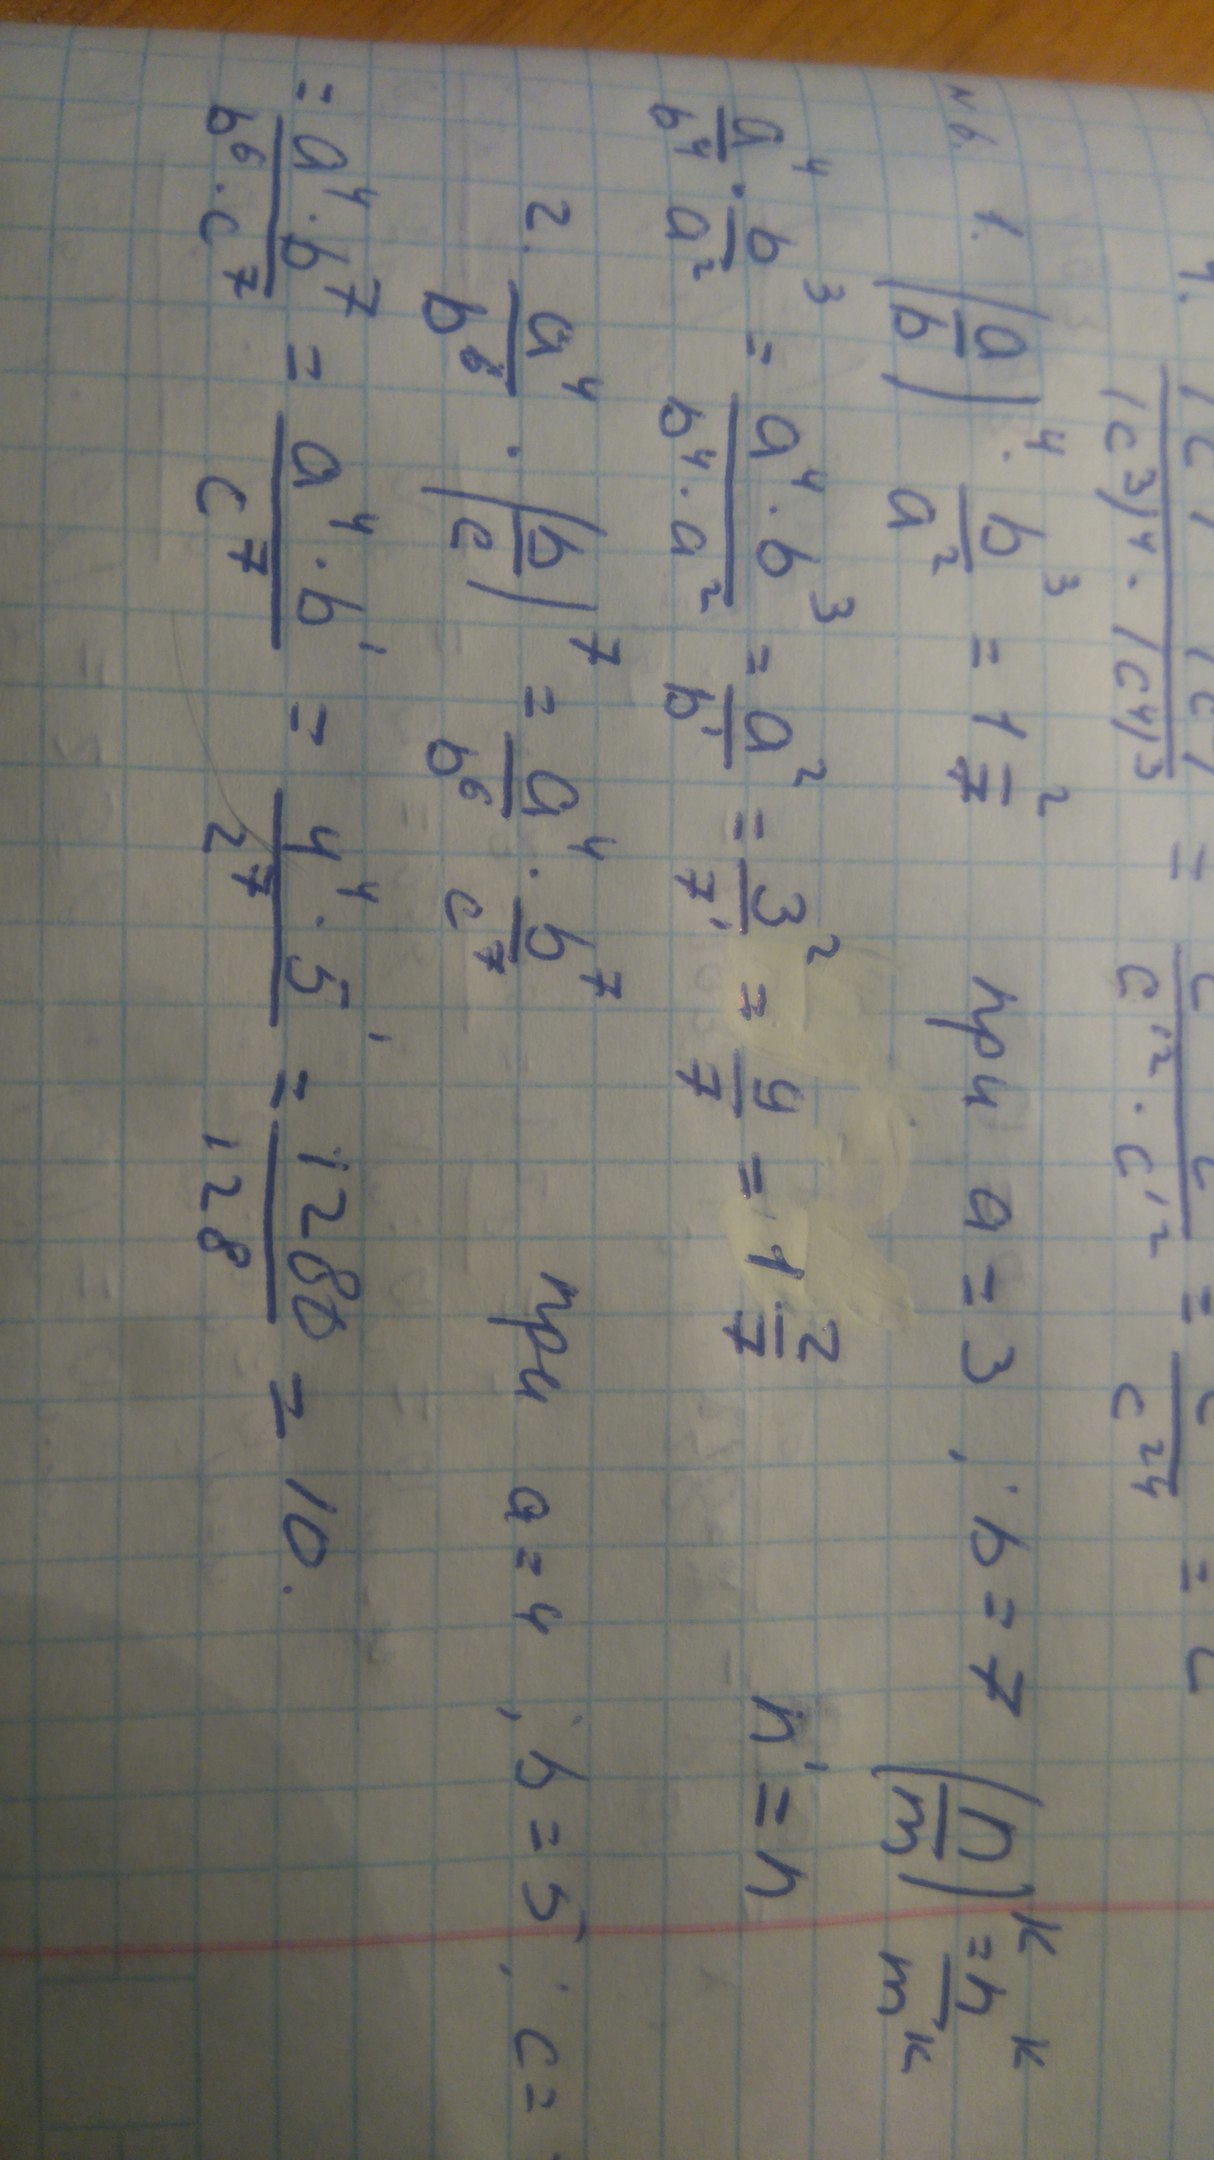 (c³)⁴ · (c⁴)³ = c¹² · c¹² = c²⁴ =
N 6. 1. (a/b)⁴ · b³/a² = 1 2/7 при a = 3, b = 7 (n/m)ᵏ = nᵏ/mᵏ
a⁴/b⁴ · b³/a² = a⁴·b³/b⁴·a² = a²/b¹ = 3²/7¹ = 9/7 = 1 2/7 n¹ = n
2. a⁴/b⁶ · (b/c)⁷ = a⁴/b⁶ · b⁷/c⁷ при a = 4, b = 5, c =
= a⁴·b⁷/b⁶·c⁷ = a⁴·b¹/c⁷ = 4⁴·5¹/2⁷ = 1280/128 = 10.